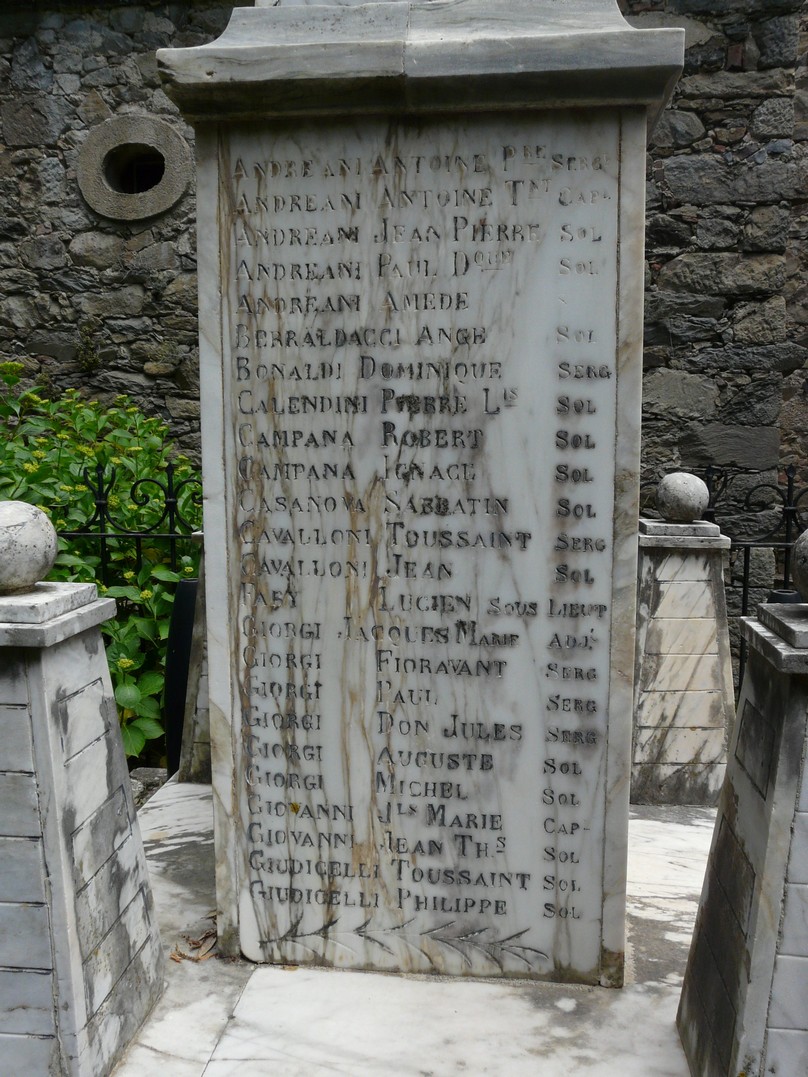 ANDREANI ANTOINE PRE SERG
ANDREANI ANTOINE TNT CAP-
ANDREANI JEAN PIERRE SOL
ANDREANI PAUL DQUE SOL
ANDREANI AMEDE
BERRALDACCI ANGE SOL
BONALDI DOMINIQUE SERG
CALENDINI PIERRE LIS SOL
CAMPANA ROBERT SOL
CAMPANA IGNACE SOL
CASANOVA SABBATIN SOL
CAVALLONI TOUSSAINT SERG
CAVALLONI JEAN SOL
FABY LUCIEN SOUS LIEUT
GIORGI JACQUES MARIE ADJ.
GIORGI FIORAVANT SERG
GIORGI PAUL SERG
GIORGI DON JULES SERG
GIORGI AUGUSTE SOL
GIORGI MICHEL SOL
GIOVANNI JLS MARIE CAP-
GIOVANNI JEAN THS SOL
GIUDICELLI TOUSSAINT SOL
GIUDICELLI PHILIPPE SOL